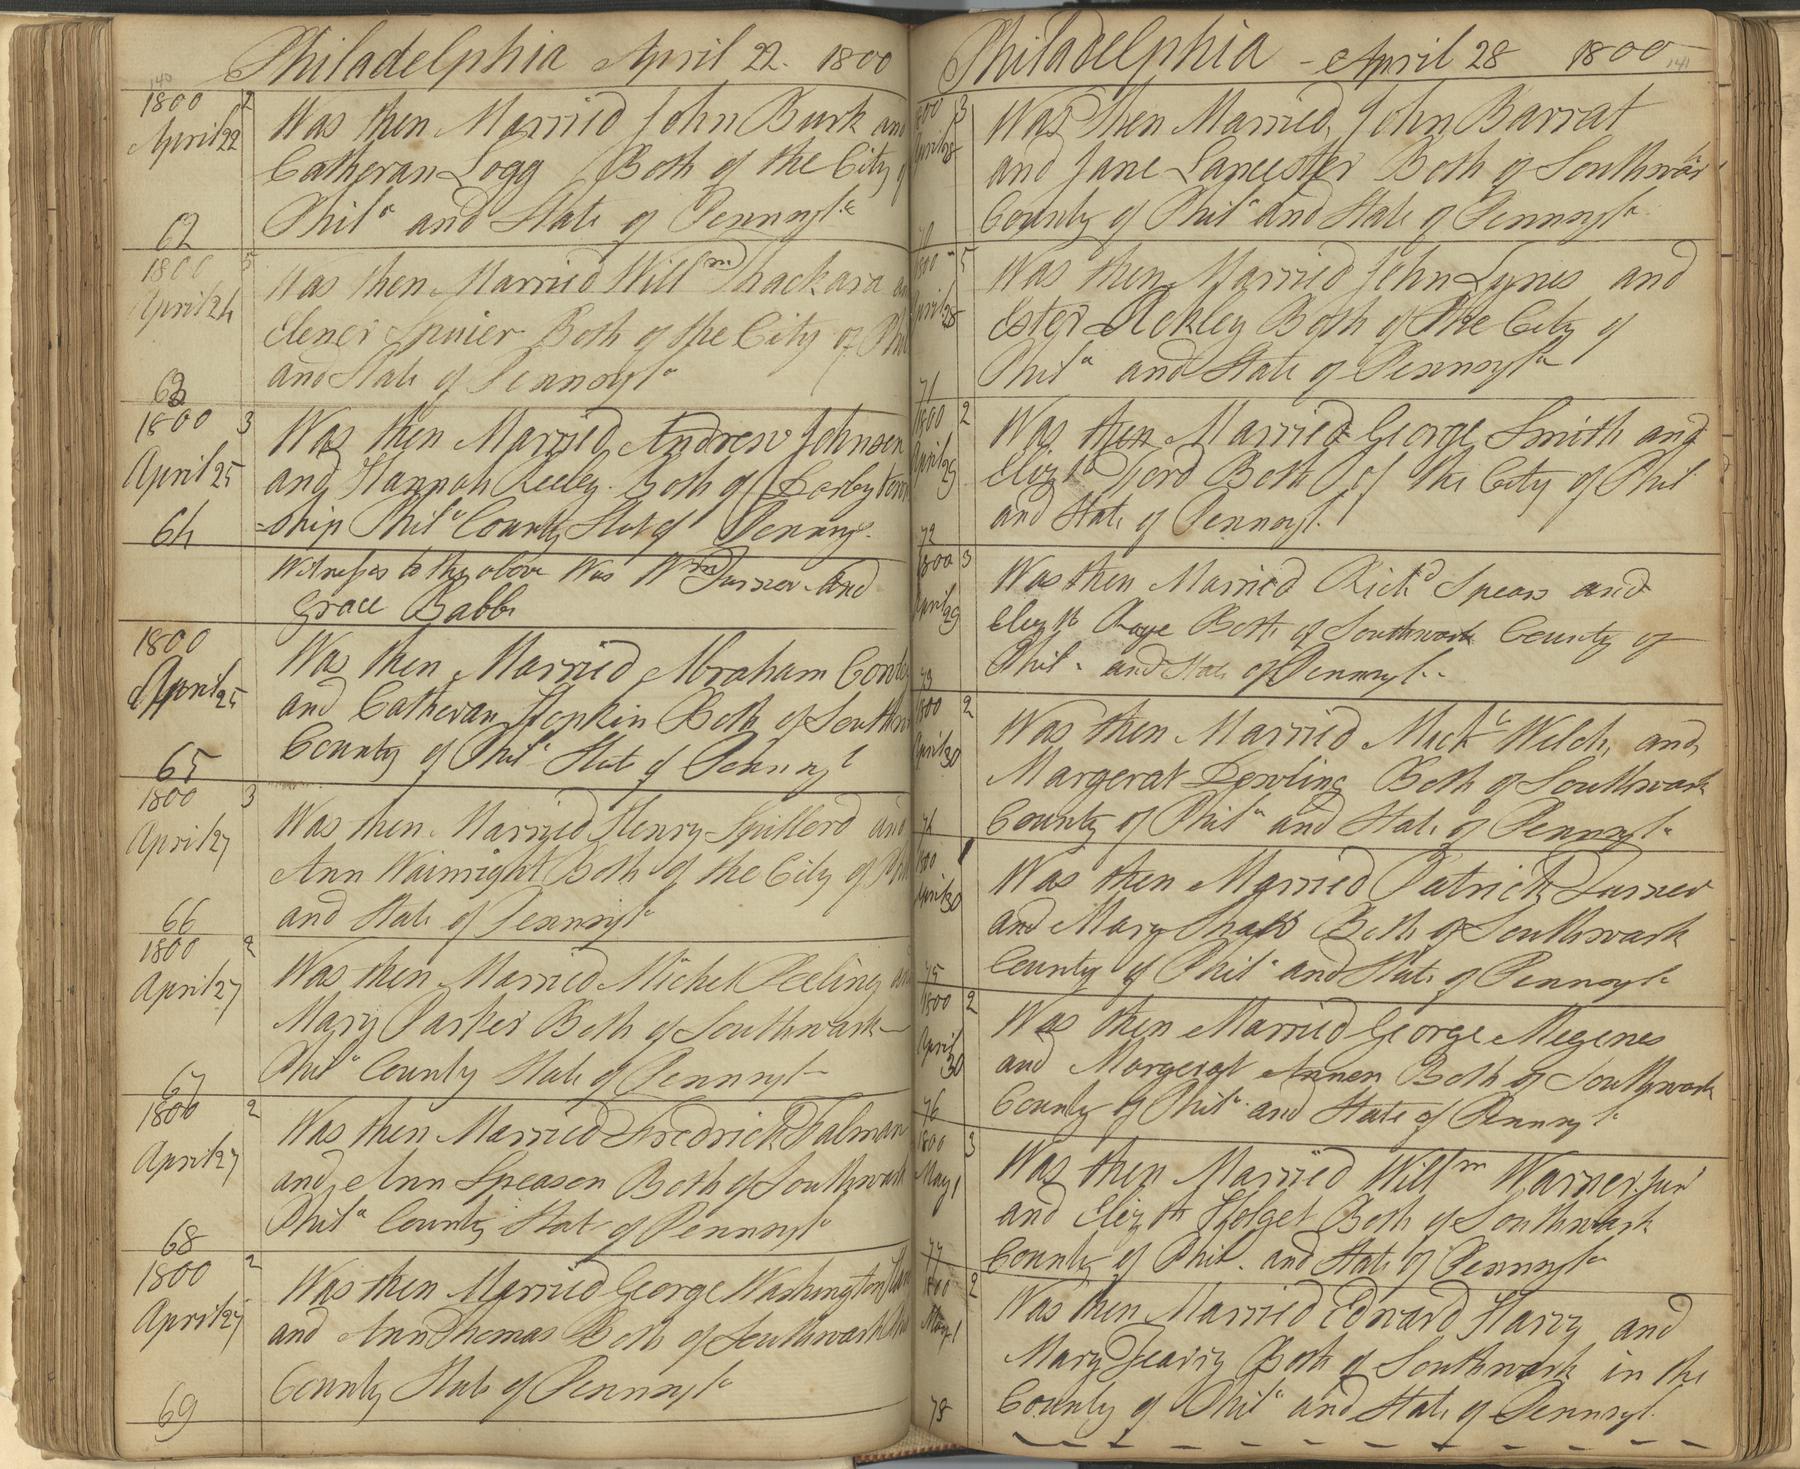 Philadelphia April 22. 1800
140
1800 2
April 22
Was then Married John Burk and
Catheran Logg Both of the City of
Phila and State of Pennsyla
62
1800 5
April 24
Was then Married Willm Thackara
Elener Both of the City of Phil
and State of Pennsyla
63
1800 3
April 25
Was then Married Andrew Johnson
and Hannah Both of Town
-ship Phila County Stat of Pennsy.
64
Witnesses to the above Was Wm Turner And
Grace Babb
1800
April 25
Was then Married Abraham
and Catheran Hopkin Both of Southw
County of Phil State of Pennsyl
65
1800 3
April 27
Was then Married Henry and
Ann Wainright Both of the City of Phi
and State of Pennsyla
66
1800 2
April 27
Was then Married Michel Peeling
Mary Parker Both of Southwark
Phila County State of Pennsyl
67
1800 2
April 27
Was then Married Fredrick Falman
and Ann Speason Both of Southwark
Phila County Stat of Pennsyla
68
1800 2
April 27
Was then Married George Washington
and Ann Thomas Both of Southwark
County State of Pennsyla
69
Philadelphia - April 28 1800
141
1800 3
April 28
Was then Married John Barrat
and Jane Lancester Both of Southwar
County of Phila and State of Pennsyla
70
1800 5
April 28
Was then Married John Lynes and
Ester Ackley Both of the City of
Phila and State of Pennsyla
71
1800 2
April 29
Was then Married George Smith and
Elizth Ford Both of the City of Phil
and State of Pennsyl.
72
1800 3
April 29
Was then Married Richd Spears and
Elizth Raye Both of Southwark County of
Phil. and State of Pennsyl.
73
1800 2
April 30
Was then Married Welch and
Margerat Dowling Both of Southwark
County of Phila and State of Pennsyla
74
1800
April 30
Was then Married Patrick Turner
and Mary Both of Southwark
County of Phila and State of Pennsyla
75
1800 2
April 30
Was then Married George Megenes
and Margerat Both of Southwark
County of Phila. and State of Pennsyl
76
1800 3
May 1
Was then Married Willm Warner Junr
and Elizth Holget Both of Southwark
County of Phil. and State of Pennsyla
77
1800 2
May 1
Was then Married Edward Harvy and
Mary Both of Southwark in the
County of Phila and State of Pennsyl.
78